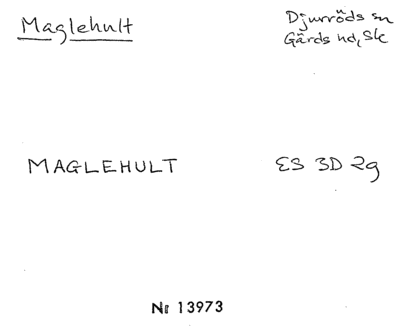 Maglehult
Djurröds sn
Gärds hd, Sk
MAGLEHULT
ES 3D 2g
Nr 13973